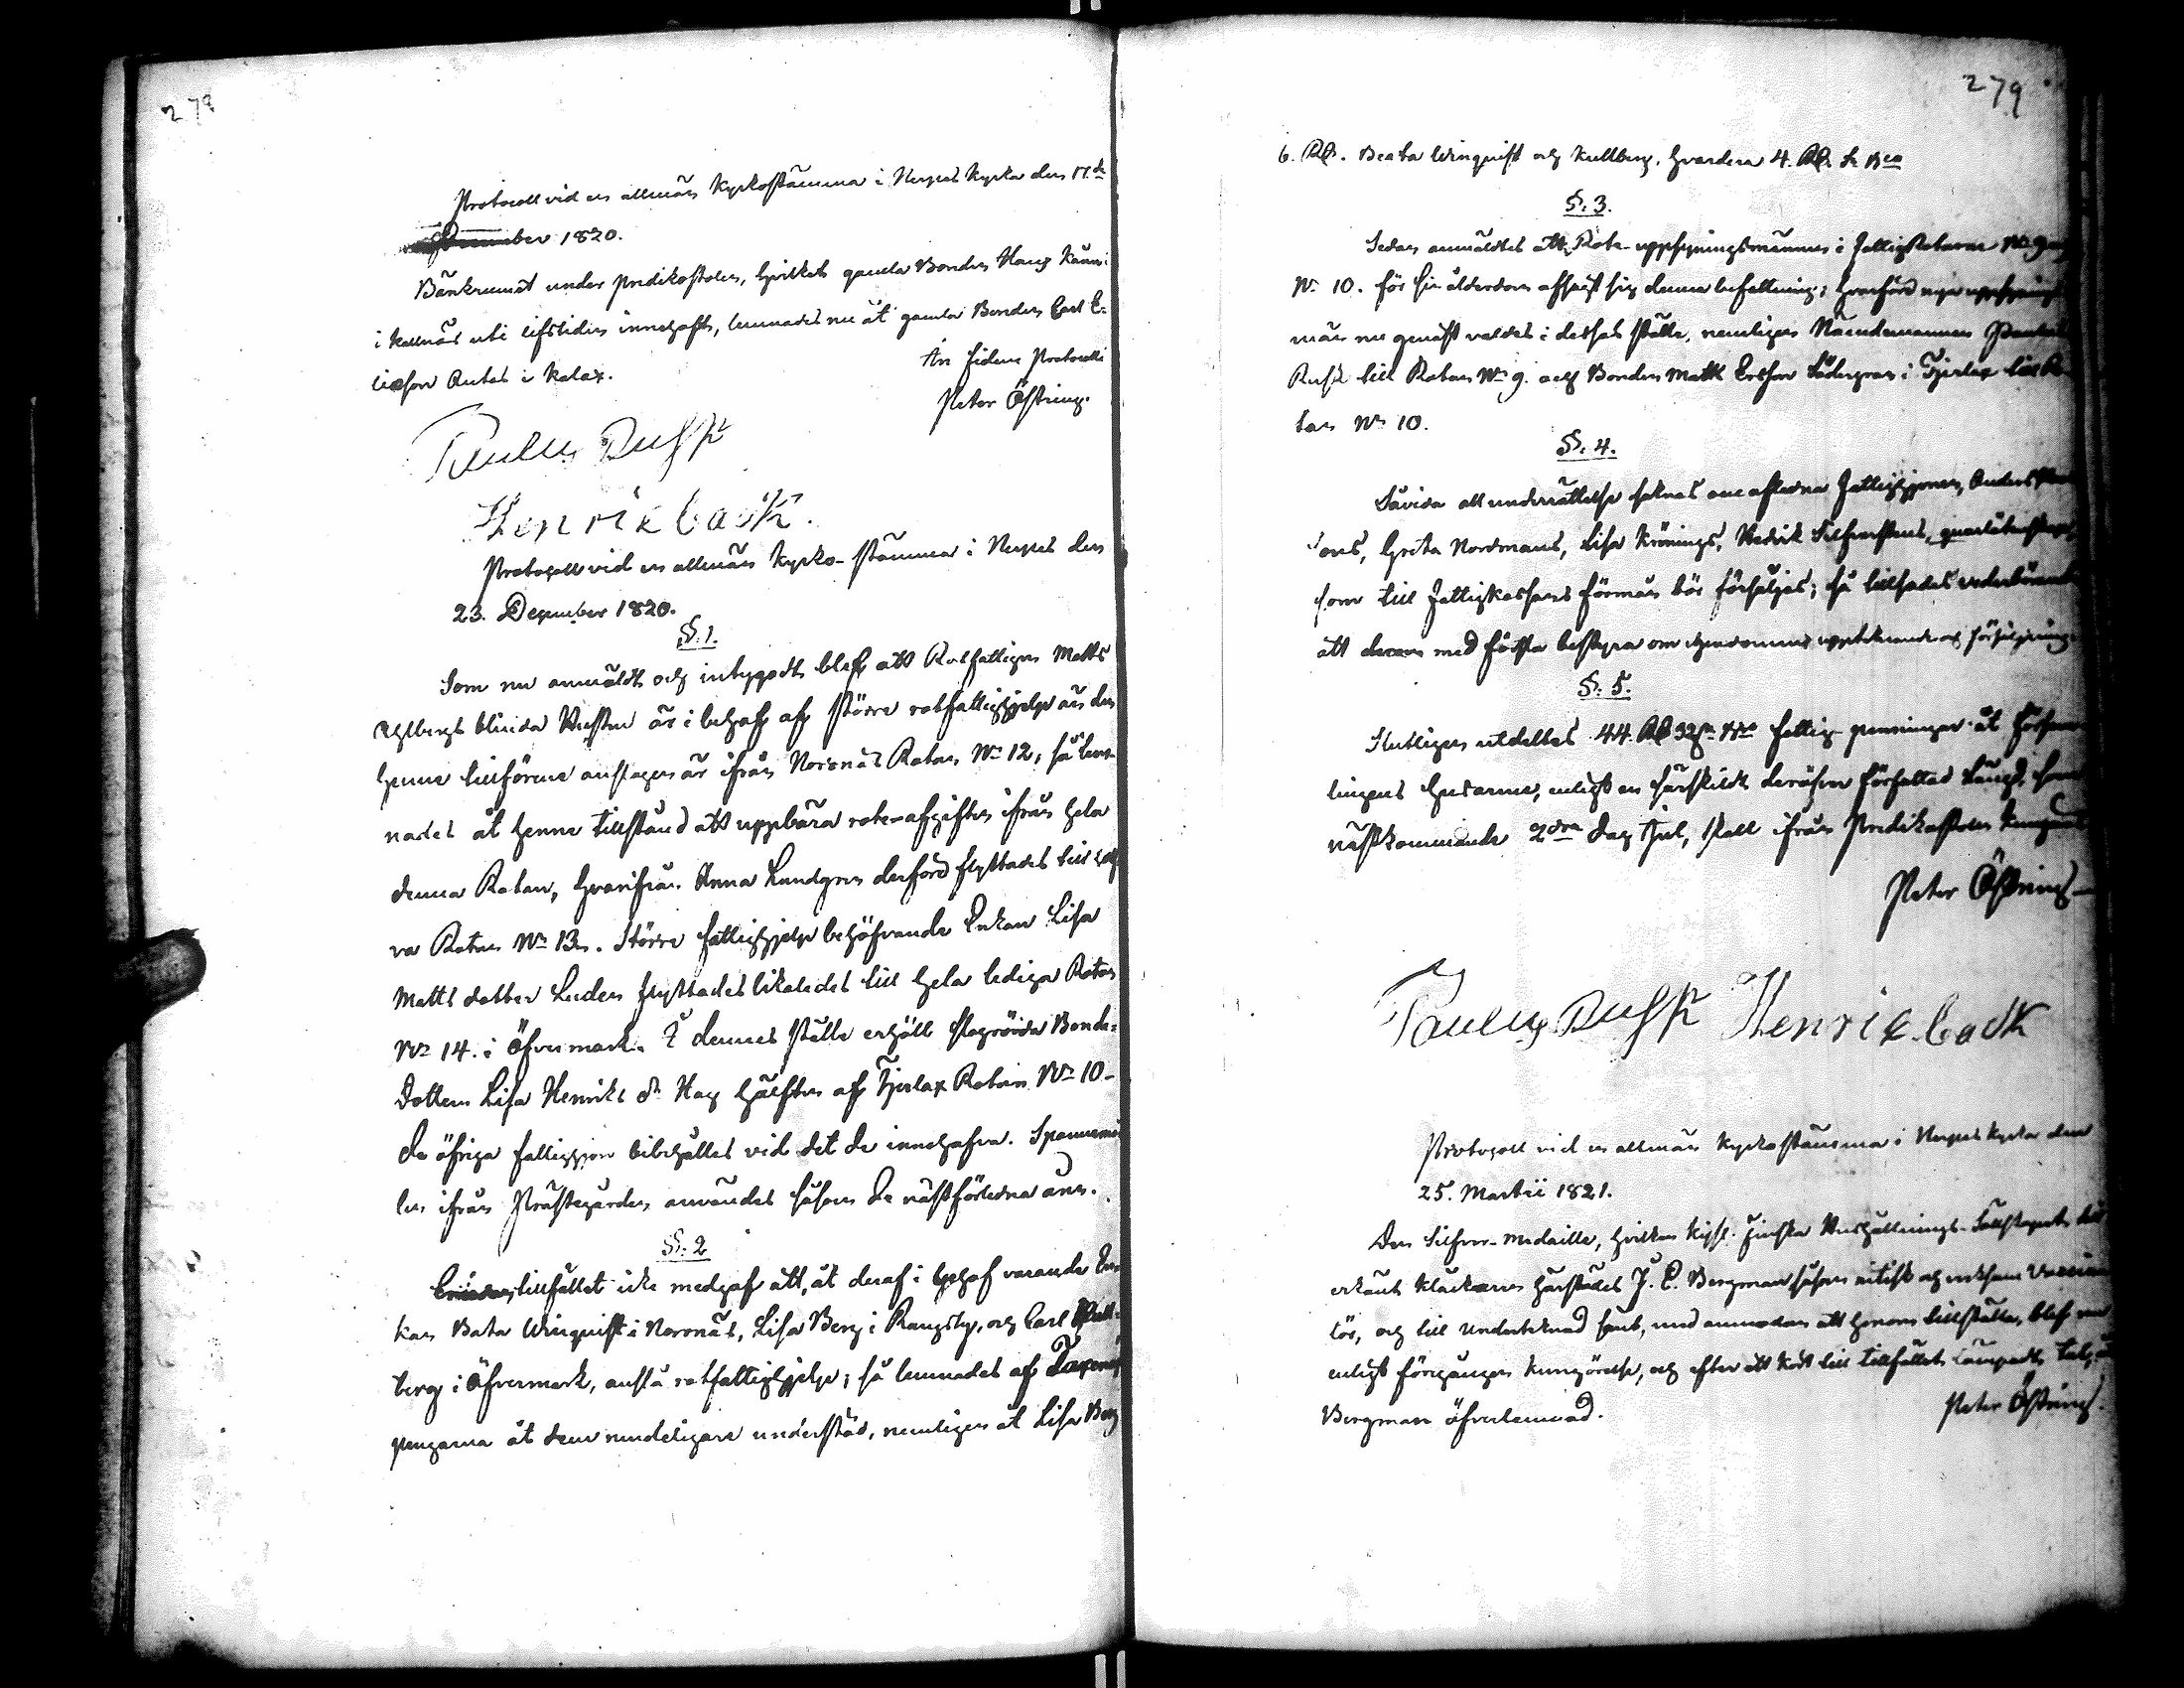 278
Protocoll vid en allmän Kyrkostämma i Nerpes Kyrka den 17de
December 1820.
Bänkrumet under predikostolen, hvilket gamla Bonden Hans
i Kallnäs uti lifstiden innehaft, lemnades nu åt gamla Bonden Carl E-
ricson Antas i Kalax.
In fidem Protocolli
Peter Östring.
Paulus Rusk
Henrik back.
Protocoll vid en allmän Kyrko-stämma i Nerpes den
23. December 1820.
§. 1.
Som nu anmäldt och intygadt blef att Rotfattigen Matts
blinda Hustru är i behof af större rotfattighjelp än den
henne tillförene anslagen är ifrån Norrnäs Rotan No 12, så lem-
nades åt henne tillstånd att uppbära rote-afgiften ifrån hela
denna Rotan, hvarifrån Anna Lundgren derföre flyttades till
va Rotan No 13. Större fattighjelp behöfvande Enkan Lisa
Matts dotter Luden flyttades likaledes till hela lediga Rotan
No 14. i Öfvermark. I dennes ställe erhöll Bonde-
Dottern Lisa Henriks dr Hag hälften af Tjerlax Rotan No 10-
De öfriga fattighjon bibehålles vid det de innehafva. Spannemå-
len ifrån Prästegården användes såsom de nästförledna åren.
§. 2
tillfället icke medgaf att, åt deraf i behof varande En-
kan Beata Winquist i Norrnäs, Lisa Berg i Rangsby, och Carl Kull-
berg i Öfvermark, anslå rotfattighjelp; så lemnades af
pengarna åt dem nödigare understöd, nemligen åt Lisa Berg
279
6. Rd. Beata Winquist och Kullberg, hvardera 4. Rd. Sr Bco
§. 3.
Sedan anmäldtes att Rote-uppsyningsmännen i Fattig Rotarne No 9 och
No 10. för sin ålderdom afsagt sig denna befattning; hvarföre nya uppsynings
män nu genast valdes i dessas ställe, nemligen Nämndemannen Paulus
Rusk till Rotan No 9. och Bonden Matts Ersson Södergran i Tjerlax till Ro-
tan No 10.
§. 4.
Såvida all underrättelse saknas om aflidna Fattighjonen, Anders
sons, Greta Nordmans, Lisa Krönings, Hedvik Silfverstens, qvarlåtenskap,
som till Fattigkassans förmån bör försäljas; så tillsades vederbörande
att derom med första bestyra om egendomens upptecknande och försäljning.
§. 5.
Slutligen utdeltes 44. Rd 32 sk. fattig-penningar åt Försam-
lingens Husarme, enligt en särskildt deröfver författad Längd, som
nästkommande 2dra Dag Jul, skall ifrån Predikostolen kungöras
Peter Östring
Paulus Rusk Henrik back
Protocoll vid en allmän Kyrkostämma i Nerpes Kyrka den
25. Martii 1821.
Den Silfver-Medaille, hvilken Kejs. Finska Hushållnings-Sällskapet till-
erkänt Klockaren härstädes J. E. Bergman såsom nitisk och verksam Vaccina-
tör, och till Undertecknad sändt, med anmodan att honom tillställa, blef nu
enligt föregången kungörelse, och efter ett kort till tillfället lämpadt Tal, åt
Bergman öfverlemnad.
Peter Östring.